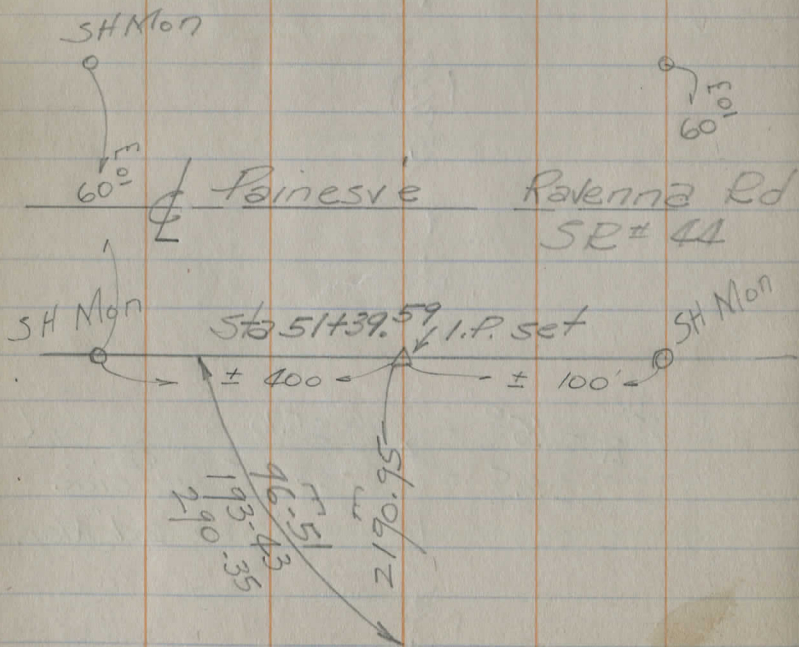 SH Mon
60.03
60.03
℄ Painesve Ravenna Rd
SR# 44
SH Mon
Sta 51+39.59 I.P. set
SH Mon
± 400
± 100'
96-51
193-43
290-35
2190.95